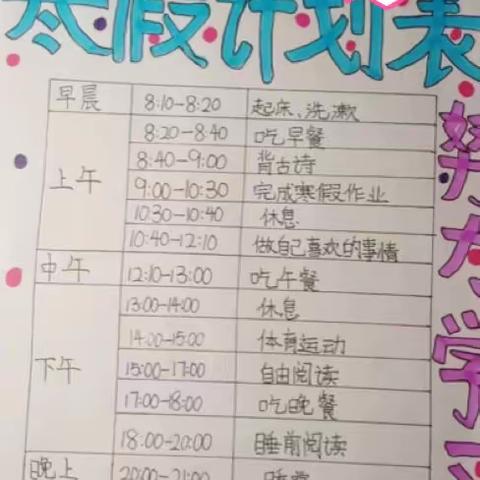 寒假计划表
早晨 8:10-8:20 起床、洗漱
上午 8:20-8:40 吃早餐
8:40-9:00 背古诗
9:00-10:30 完成寒假作业
10:30-10:40 休息
10:40-12:10 做自己喜欢的事情
中午 12:10-13:00 吃午餐
下午 13:00-14:00 休息
14:00-15:00 体育运动
15:00-17:00 自由阅读
17:00-18:00 吃晚餐
18:00-20:00 睡前阅读
晚上 20:00-21:00 睡觉
努力学习